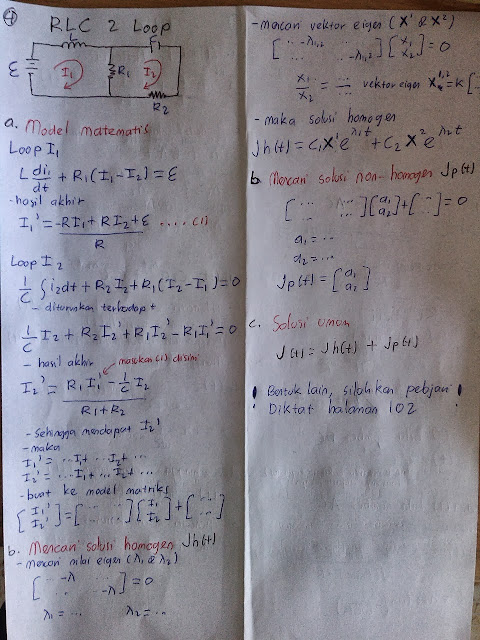 ④ RLC 2 Loop
L
C
ε
I₁
R₁
I₂
R₂
a. Model matematis
Loop I₁
L di₁/dt + R₁(I₁-I₂) = ε
-hasil akhir
I₁' = (-RI₁+RI₂+ε)/R .... (1)
Loop I₂
1/C ∫i₂dt + R₂I₂ + R₁(I₂-I₁) = 0
- diturunkan terhadap t
1/C I₂ + R₂I₂' + R₁I₂' - R₁I₁' = 0
- hasil akhir
masukan (1) disini
I₂' = (R₁I₁' - 1/C I₂)/(R₁+R₂)
- sehingga mendapat I₂'
- maka
I₁' = ...I₁+ ...I₂+ ...
I₂' = ...I₁+ ...I₂+ ...
-buat ke model matriks
[I₁' I₂'] = [... ...][I₁ I₂] + [... ...]
b. Mencari solusi homogen Jh(t)
- mencari nilai eigen (λ₁ & λ₂)
[...-λ ... ... ...-λ] = 0
λ₁ = ... λ₂ = ...
-mencari vektor eigen (X¹ & X²)
[...-λ₁,₂ ... ... ...-λ₁,₂][x₁ x₂] = 0
x₁/x₂ = ... vektor eigen X¹,² = k[...
-maka solusi homogen
Jh(t) = C₁X¹e^λ₁t + C₂X²e^λ₂t
b. Mencari solusi non-homogen Jp(t)
[... ...][a₁ a₂] + [... ...] = 0
a₁ = ...
a₂ = ...
Jp(t) = [a₁ a₂]
c. Solusi umum
J(t) = Jh(t) + Jp(t)
! Bentuk lain, silahkan pelajari !
Diktat halaman 102